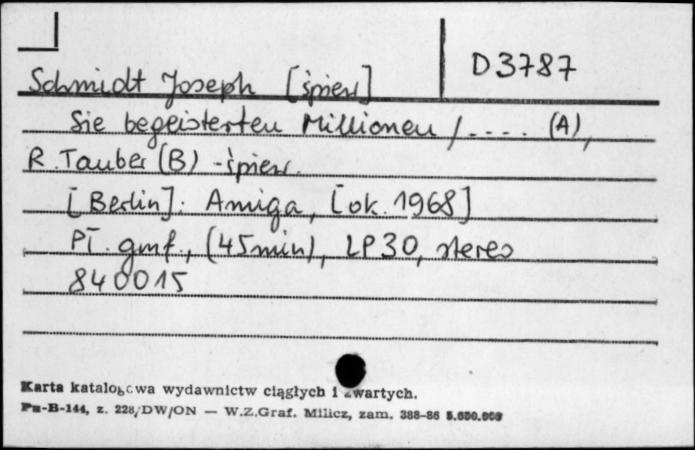 D3787
Schmidt Joseph [śpiew]
Sie begeisterten Millionen / .... (A),
R. Tauber (B) - śpiew.
[Berlin]: Amiga, [ok. 1968]
Pł. gmf., (45min), LP30, stereo
840015
Karta katalogowa wydawnictw ciągłych i zwartych.
Pu-B-144, z. 228/DW/ON — W.Z.Graf. Milicz, zam. 388-86 5.650.000